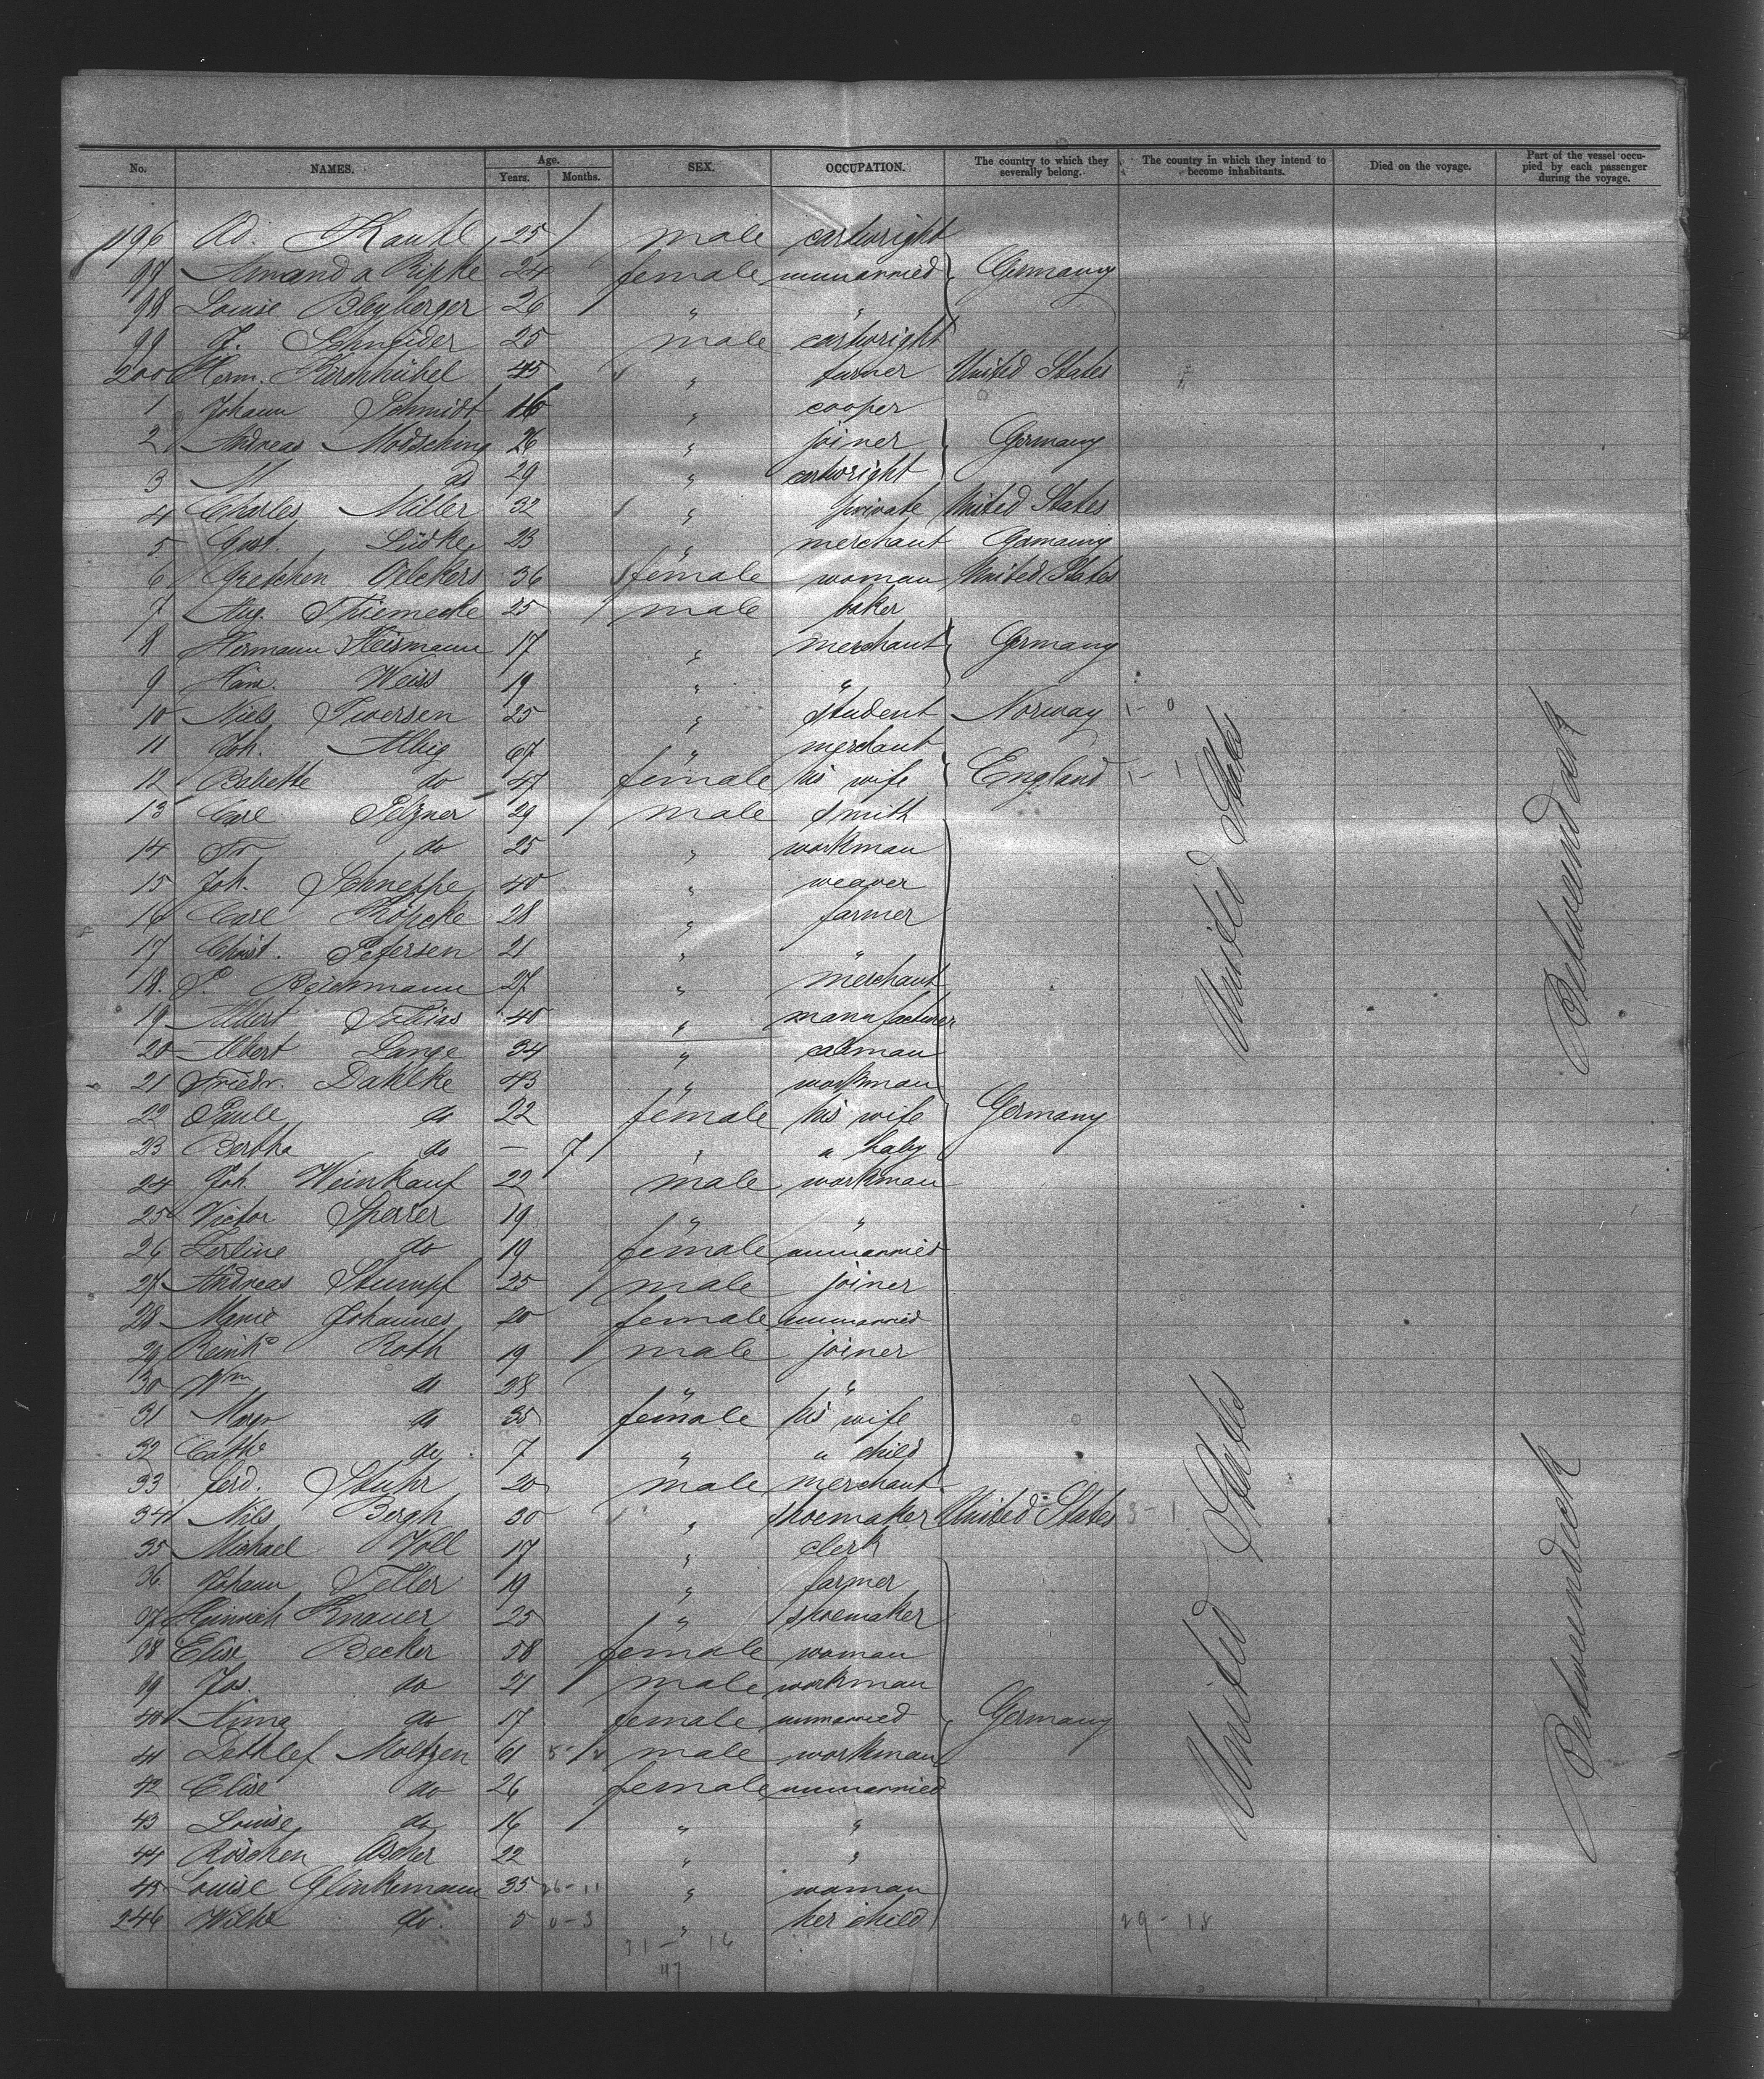 No. NAMES. Age. Years. Months. SEX. OCCUPATION. The country to which they severally belong. The country in which they intend to become inhabitants. Died on the voyage. Part of the vessel occupied by each passenger during the voyage.
196 Ad. 25 male cartwright
97 Amanda Ripke 24 female unmarried Germany
98 Louise Bleyberger 26 " "
99 J. Schneider 25 male cartwright
200 Herm. Kirchhübel 45 " farmer United States
1 Johann Schmidt 16 " cooper
2 Andreas Modsching 26 " joiner Germany
3 M do 29 " cartwright
4 Charles Miller 32 " private United States
5 Gust. Lüdke 23 " merchant Germany
6 Gretchen Oelckers 36 female woman United States
7 Aug. Thiemecke 25 male baker
8 Hermann Heismann 17 " merchant Germany
9 Weiss 19 " "
10 Niels Iversen 25 " student Norway 1-0
11 Joh. Albig 67 " merchant
12 Babette do 47 female his wife England 1-1
13 Carl Pelzner 29 male smith
14 Fr do 25 " workman
15 Joh. Schneppe 40 " weaver
16 Carl Köpcke 28 " farmer
17 Christ. Petersen 21 " "
18. P. Reichmann 27 " merchant
19 Albert Tobias 40 " manufacturer
20 Albert Lange 34 "
21 Friedr. Dahlke 43 " workman
22 Paule do 22 female his wife Germany
23 Bertha do — 7 " " baby
24 Joh. Weinkauf 22 male workman
25 Victor Sperrer 19 " "
26 do 19 female unmarried
27 Andreas Stumpf 25 male joiner
28 Marie Johannes 20 female unmarried
29 Reinhd Roth 19 male joiner
30 Wm do 28 " "
31 do 35 female his wife
32 Cathe do 7 " " child
33 Ferd. Stuhr 20 male merchant
34 Nils Bergh 30 " shoemaker United States 3-1
35 Michael Voll 17 " clerk
36 Johann Teller 19 " farmer
37 Heinrich Knauer 25 " shoemaker
38 Elise Becker 58 female woman
39 Jos. do 21 male workman
40 Anna do 17 female unmarried Germany
41 Dethlef Moltzen 61 male workman
42 Elise do 26 female unmarried
43 Louise do 16 " "
44 Röschen Ascher 22 " "
45 Louise Glinkemann 35 26-11 " woman
246 Wilhe do. 5 0-3 " her child 29-18
31-16
47
United States
United States
Betweendeck
Betweendeck